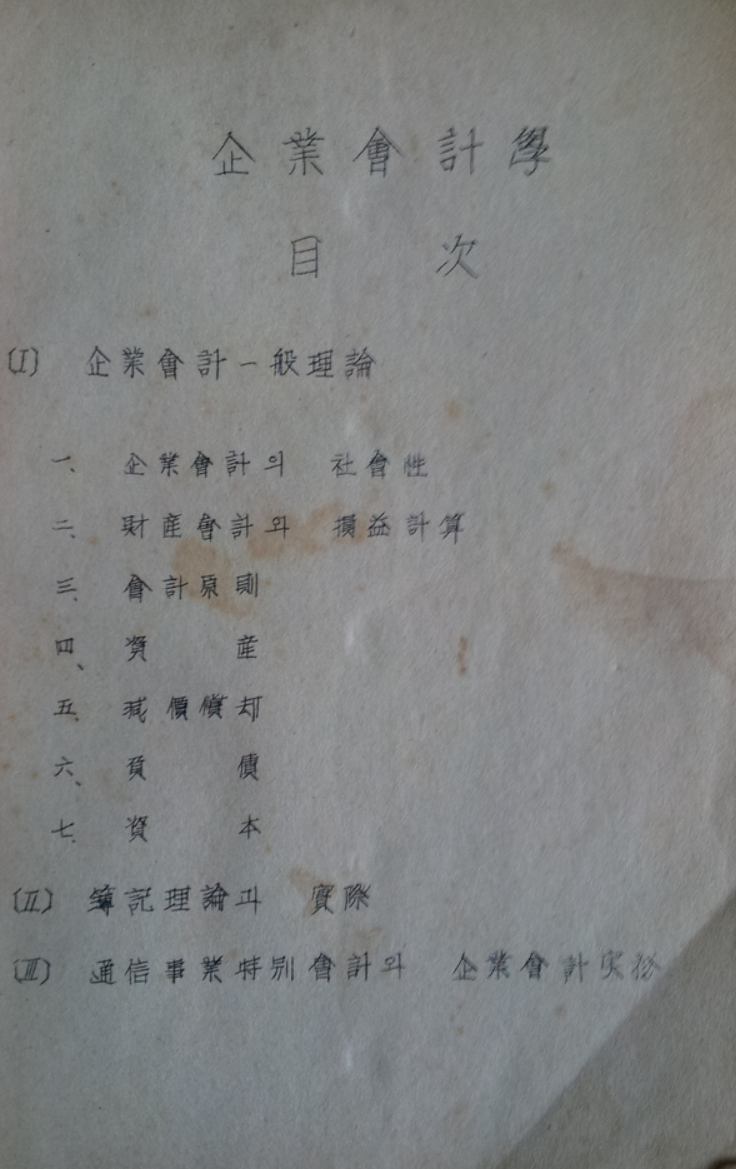 企業會計學
目 次
(I) 企業會計一般理論
一、 企業會計의 社會性
二、 財産會計와 損益計算
三、 會計原則
四、 資 産
五、 减價償却
六、 負 債
七、 資 本
(II) 簿記理論과 實際
(III) 通信事業特別會計와 企業會計実務